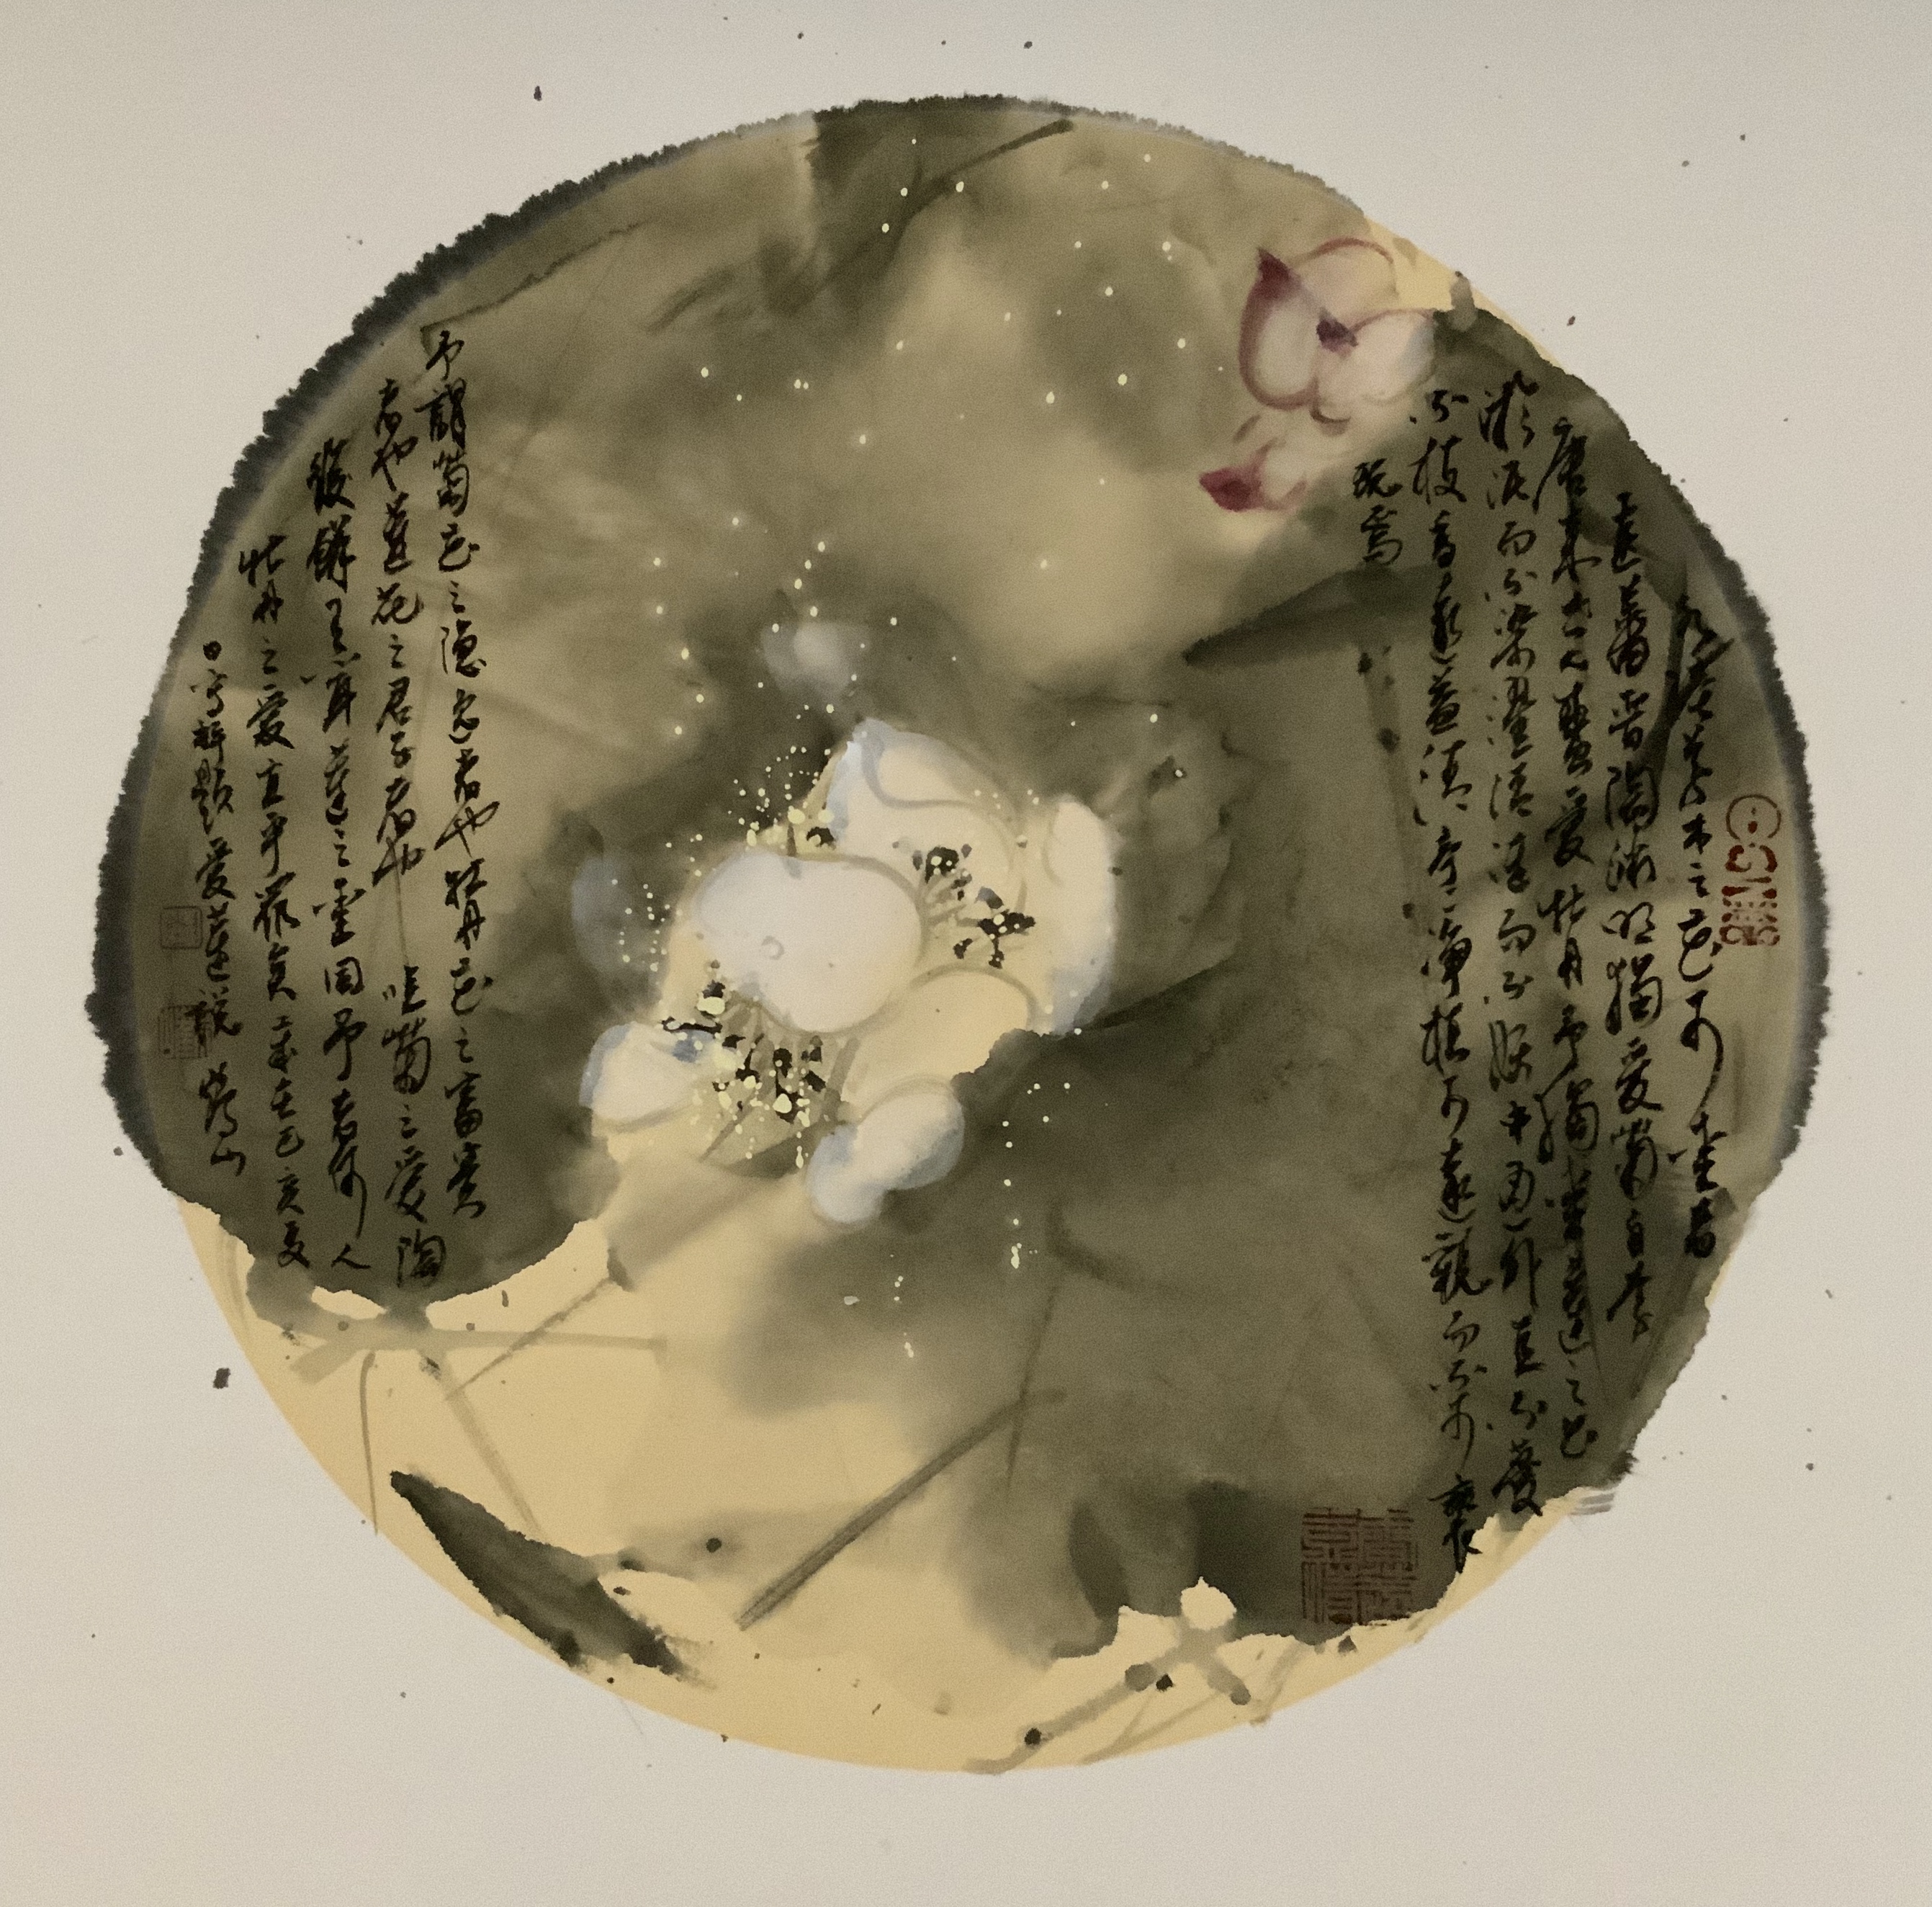 水陸草木之花可愛者
甚蕃晉陶淵明獨愛菊自李
唐來世人盛愛牡丹予獨愛蓮之出
淤泥而不染濯清漣而不妖中通外直不蔓
不枝香遠益清亭亭淨植可遠觀而不可褻
玩焉
予謂菊花之隱逸者也牡丹花之富貴
者也蓮花之君子者也 噫菊之愛陶
後鮮有聞蓮之愛同予者何人
牡丹之愛宜乎衆矣 歲在己亥夏
日寫并題愛蓮說